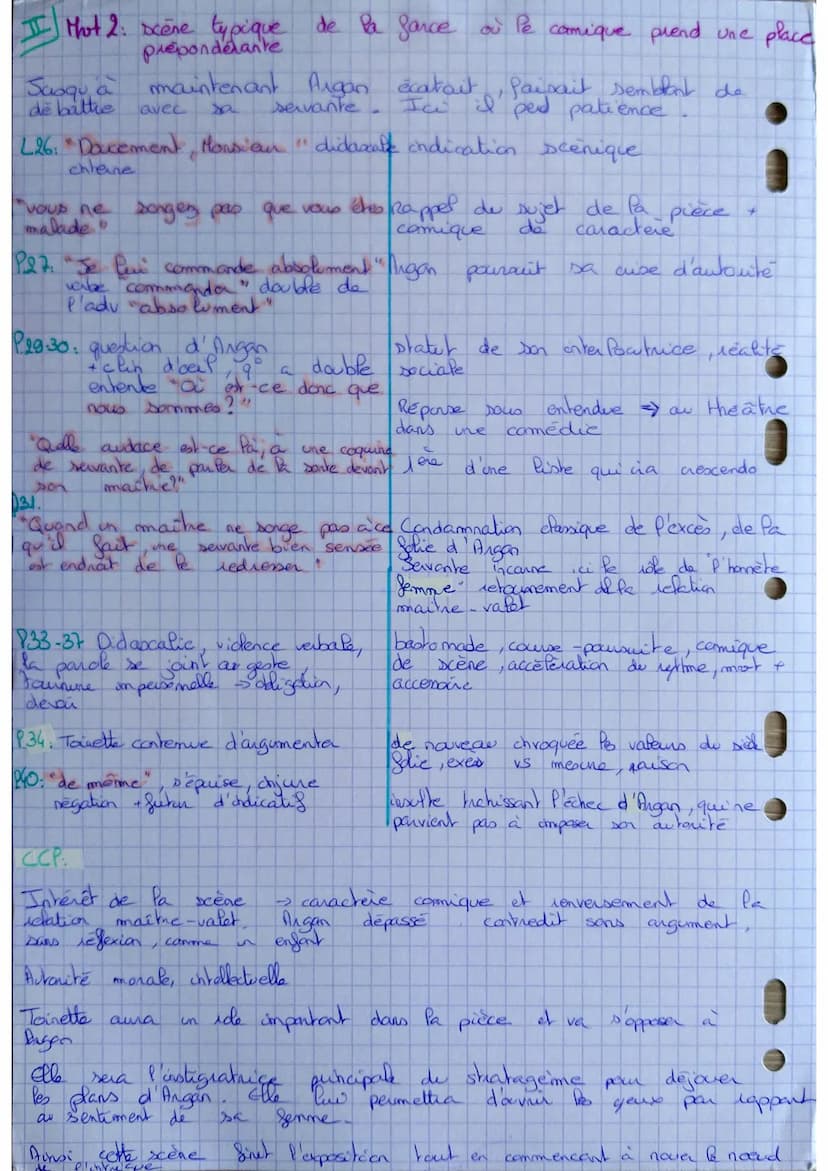 II Mvt 2: scène typique de la farce où le comique prend une place
prépondérante
Jusqu'à maintenant Argan écoutait, faisait semblant de
débattre avec sa servante. Ici il perd patience.
L26: "Doucement, Monsieur" didascalie indication scénique
interne
"vous ne songez pas que vous êtes Rappel du sujet de la pièce +
malade" comique de caractère
l27: "Je lui commande absolument" Argan poursuit sa crise d'autorité
verbe "commander" double de
l'adv "absolument"
l29-30: question d'Argan statut de son interlocutrice, réalité
+ clin d'oeil, q° a double sociale
entente "Où est-ce donc que
nous sommes?" Réponse sous entendue => au théâtre
dans une comédie
"Quelle audace est-ce là, à une coquine
de servante, de parler de la sorte devant 1ère d'une liste qui ira crescendo
son maître!"
l31.
"Quand un maître ne songe pas à ce Condamnation classique de l'excès, de la
qu'il fait, une servante bien sensée folie d'Argan
est endroit de le redresser" Servante incarne ici le rôle de "l'honnête
femme" retournement de la relation
maître-valet
l33-37 Didascalie, violence verbale, bastonnade, course-poursuite, comique
la parole se joint au geste, de scène, accélération du rythme, mort +
tournure impersonnelle -> obligation, accessoire
devoir
l34. Toinette continue d'argumenter de nouveau les valeurs du
folie, excès vs mesure, raison
l40: "de même", s'épuise, injure
négation + futur d'indicatif insulte trahissant l'échec d'Argan, qui ne
parvient pas à imposer son autorité
CCP:
Intérêt de la scène -> caractère comique et renversement de la
relation maître-valet. Argan dépassé contredit sans argument,
sans réflexion, comme un enfant
Autorité morale, intellectuelle
Toinette aura un rôle important dans la pièce et va s'opposer à
Argan
Elle sera l'instigratrice principale du stratagème pour déjouer
les plans d'Argan. Elle lui permettra d'ouvrir les yeux par rapport
au sentiment de sa femme.
Ainsi cette scène finit l'exposition tout en commencant à nouer le nœud
de l'intrigue